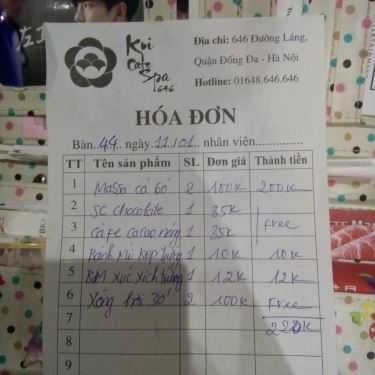 Koi
Cafe
Spa
646
Địa chỉ: 646 Đường Láng,
Quận Đống Đa - Hà Nội
Hotline: 01648.646.646
HÓA ĐƠN
Bàn..44..ngày.11/01..nhân viên..............
TT Tên sản phẩm SL Đơn giá Thành tiền
1 Massa cá bó 2 100K 200K
2 SC chocolate 1 35K
3 Cafe cacao nóng 1 35K Free
4 Bánh mì kẹp trứng 1 10K 10K
5 BM xúc xích trứng 1 12K 12K
6 Xông hơi 30' 2 100K Free
7 222K
8
9